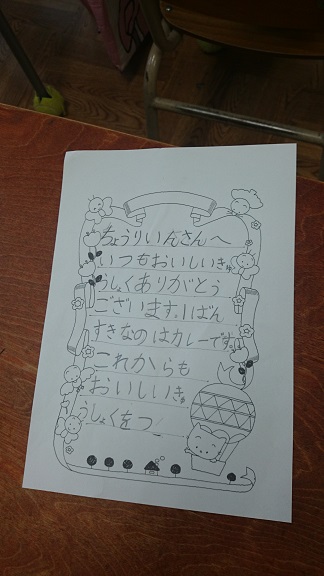 ちょうりいんさんへ
いつもおいしいきゅ
うしょくありがとう
ございます。1ばん
すきなのはカレーです。
これからも
おいしいきゅ
うしょくをつ